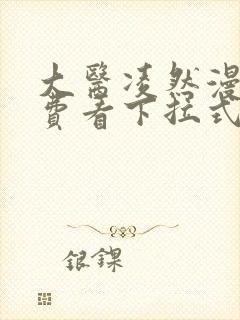 大醫凌然漫
費看下拉式
銀鏍